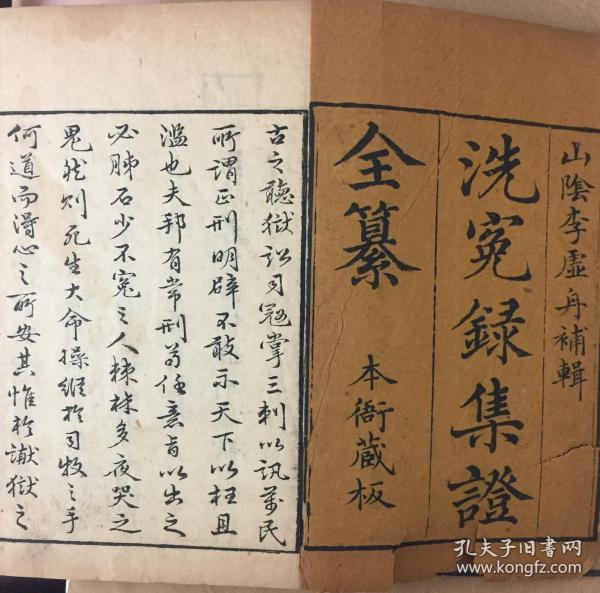 山陰李虛舟補輯
洗冤録集證
全纂
本衙藏板
古之聽獄訟司冦掌三刺以訊萬民
所謂正刑明辟不敢示天下以枉且
濫也夫邦有常刑苟任意旨以出之
必肺石少不冤之人棘林多夜哭之
鬼然則死生大命操縱於司牧之手
何道而得心之所安其惟於讞獄之
孔夫子旧书网
www.kongfz.com